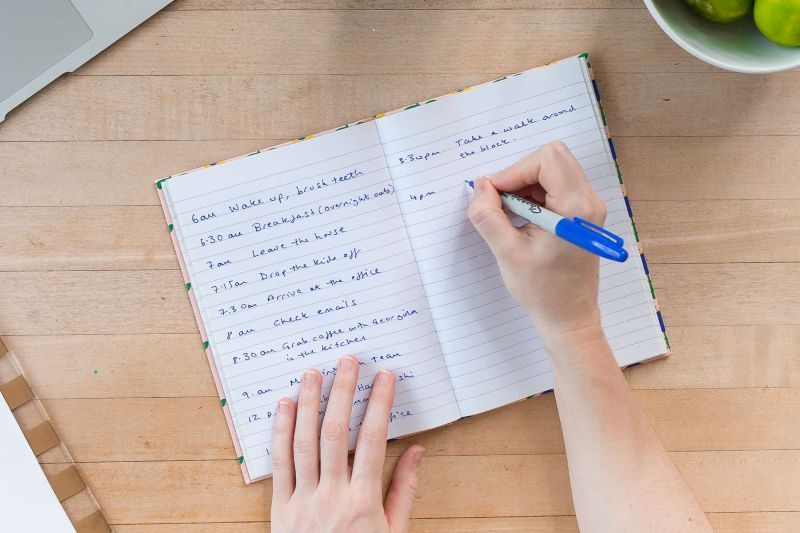 6am Wake up, brush teeth
6.30 am Breakfast (overnight oats)
7am Leave the house
7.15am Drop the kids off
7.30am Arrive at the office
8 am Check emails
8.30am Grab coffee with Georgina
in the kitchen
9. am team
12
office
3.30pm Take a walk around
the block.
4pm